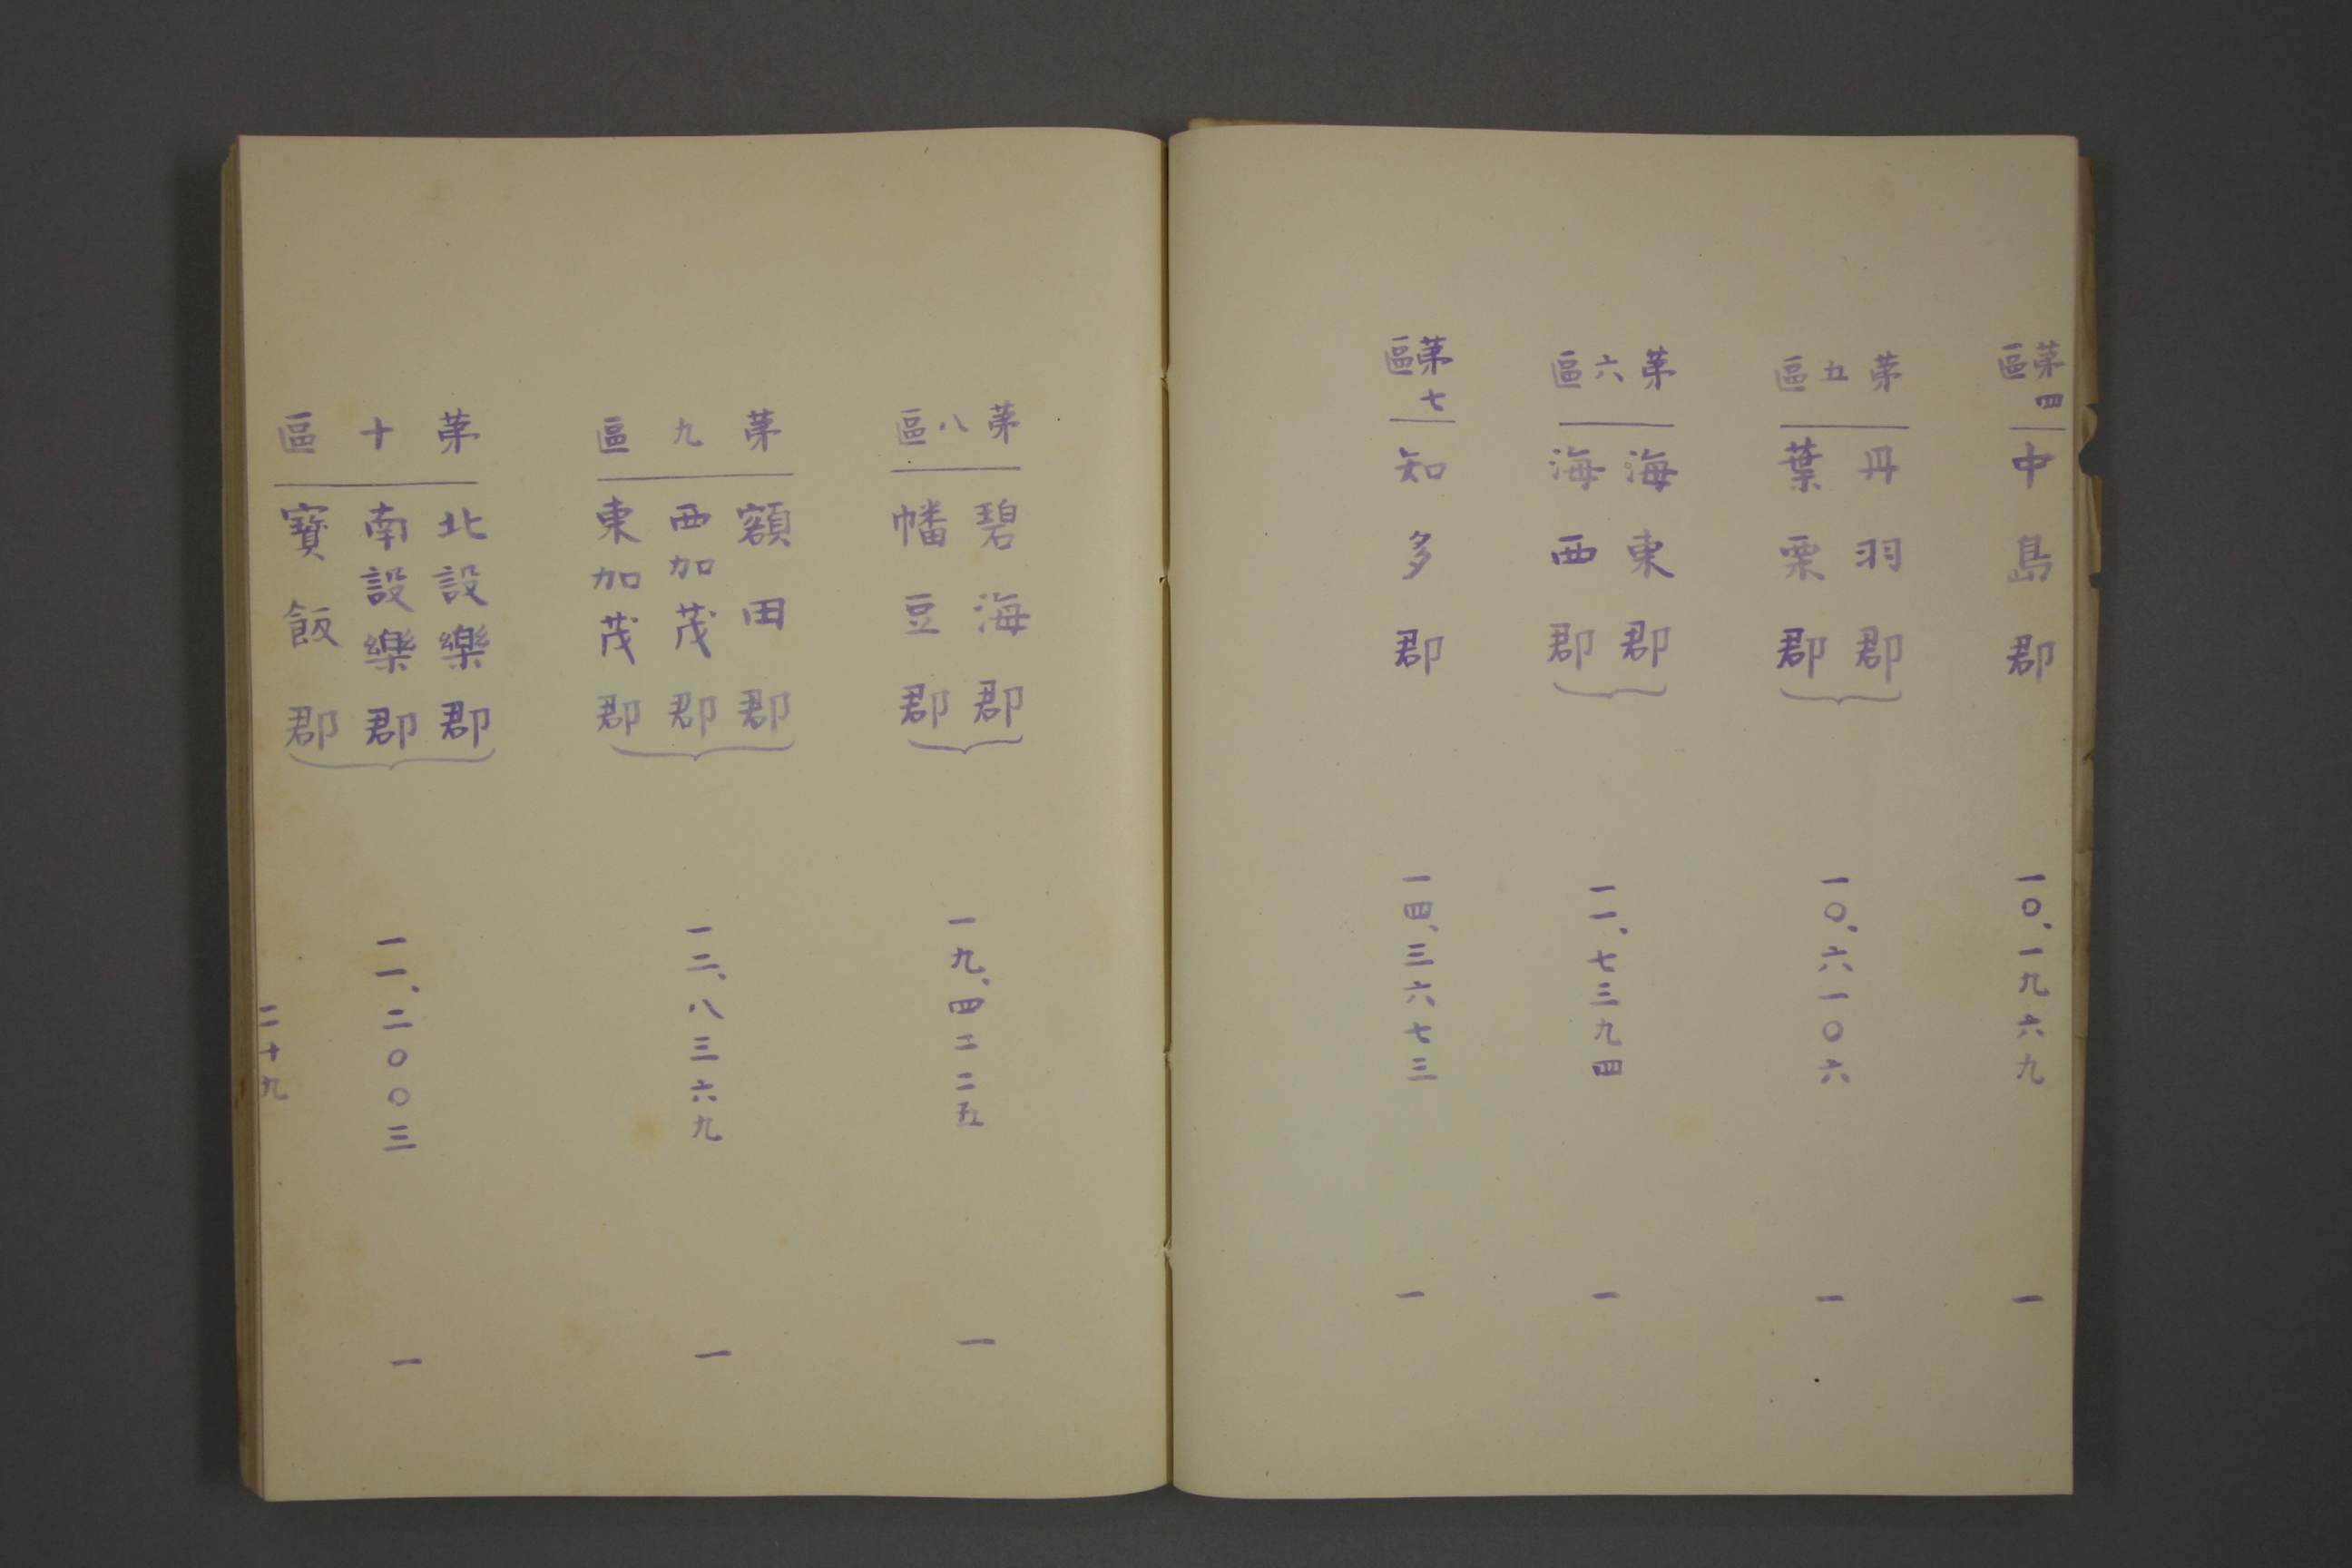 第四區
中島郡
一〇、一九六九
一
第五區
丹羽郡
葉栗郡
一〇、六一〇六
一
第六區
海東郡
海西郡
一一、七三九四
一
第七區
知多郡
一四、三六七三
一
第八區
碧海郡
幡豆郡
一九、四二二五
一
第九區
額田郡
西加茂郡
東加茂郡
一二、八三六九
一
第十區
北設樂郡
南設樂郡
寶飯郡
一一、二〇〇三
一
二十九